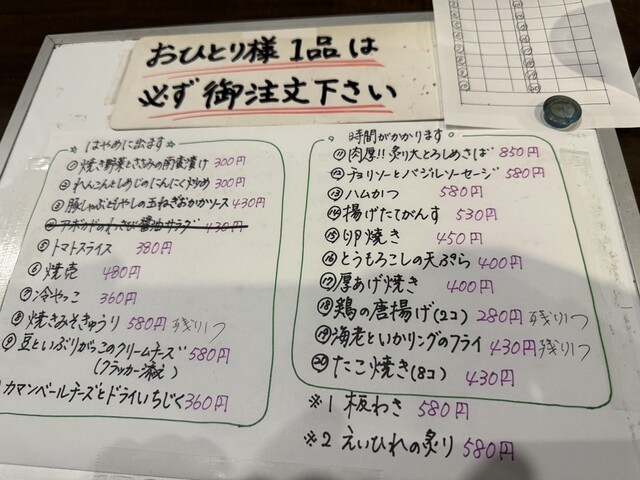 おひとり様1品は
必ず御注文下さい
☆はやめに出ます☆
① 焼き野菜とささみの南蛮漬け 300円
② れんこんとしめじのにんにく炒め 300円
③ 豚しゃぶともやしの玉ねぎおかかソース 430円
④ アボカドのわさび醤油サラダ 430円
⑤ トマトスライス 380円
⑥ 焼売 480円
⑦ 冷やっこ 360円
⑧ 焼きみそきゅうり 580円 残り1つ
⑨ 豆といぶりがっこのクリームチーズ 580円
(クラッカー添え)
カマンベールチーズとドライいちじく 360円
。時間がかかります。
⑪ 肉厚!! 炙り大とろしめさば 850円
⑫ チョリソーとバジルソーセージ 580円
⑬ ハムかつ 580円
⑭ 揚げたてがんす 530円
⑮ 卵焼き 450円
⑯ とうもろこしの天ぷら 400円
⑰ 厚あげ焼き 400円
⑱ 鶏の唐揚げ(2コ) 280円 残り1つ
⑲ 海老といかリングのフライ 430円 残り1つ
⑳ たこ焼き(8コ) 430円
※1 板わさ 580円
※2 えいひれの炙り 580円